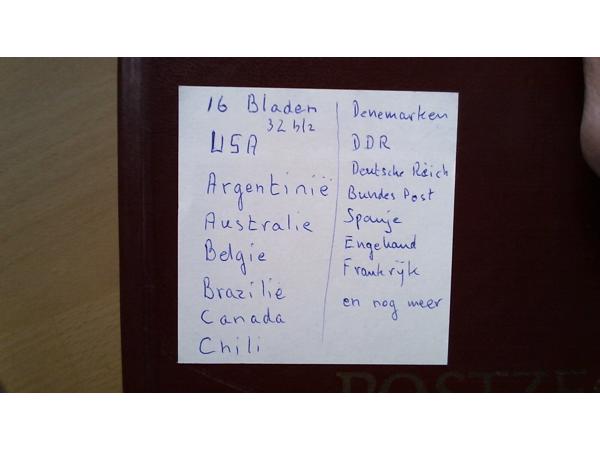 16 Bladen
32 blz
USA
Argentinië
Australie
Belgie
Brazilië
Canada
Chili
Denemarken
DDR
Deutsche Reich
Bundes Post
Spanje
Engeland
Frankrijk
en nog meer